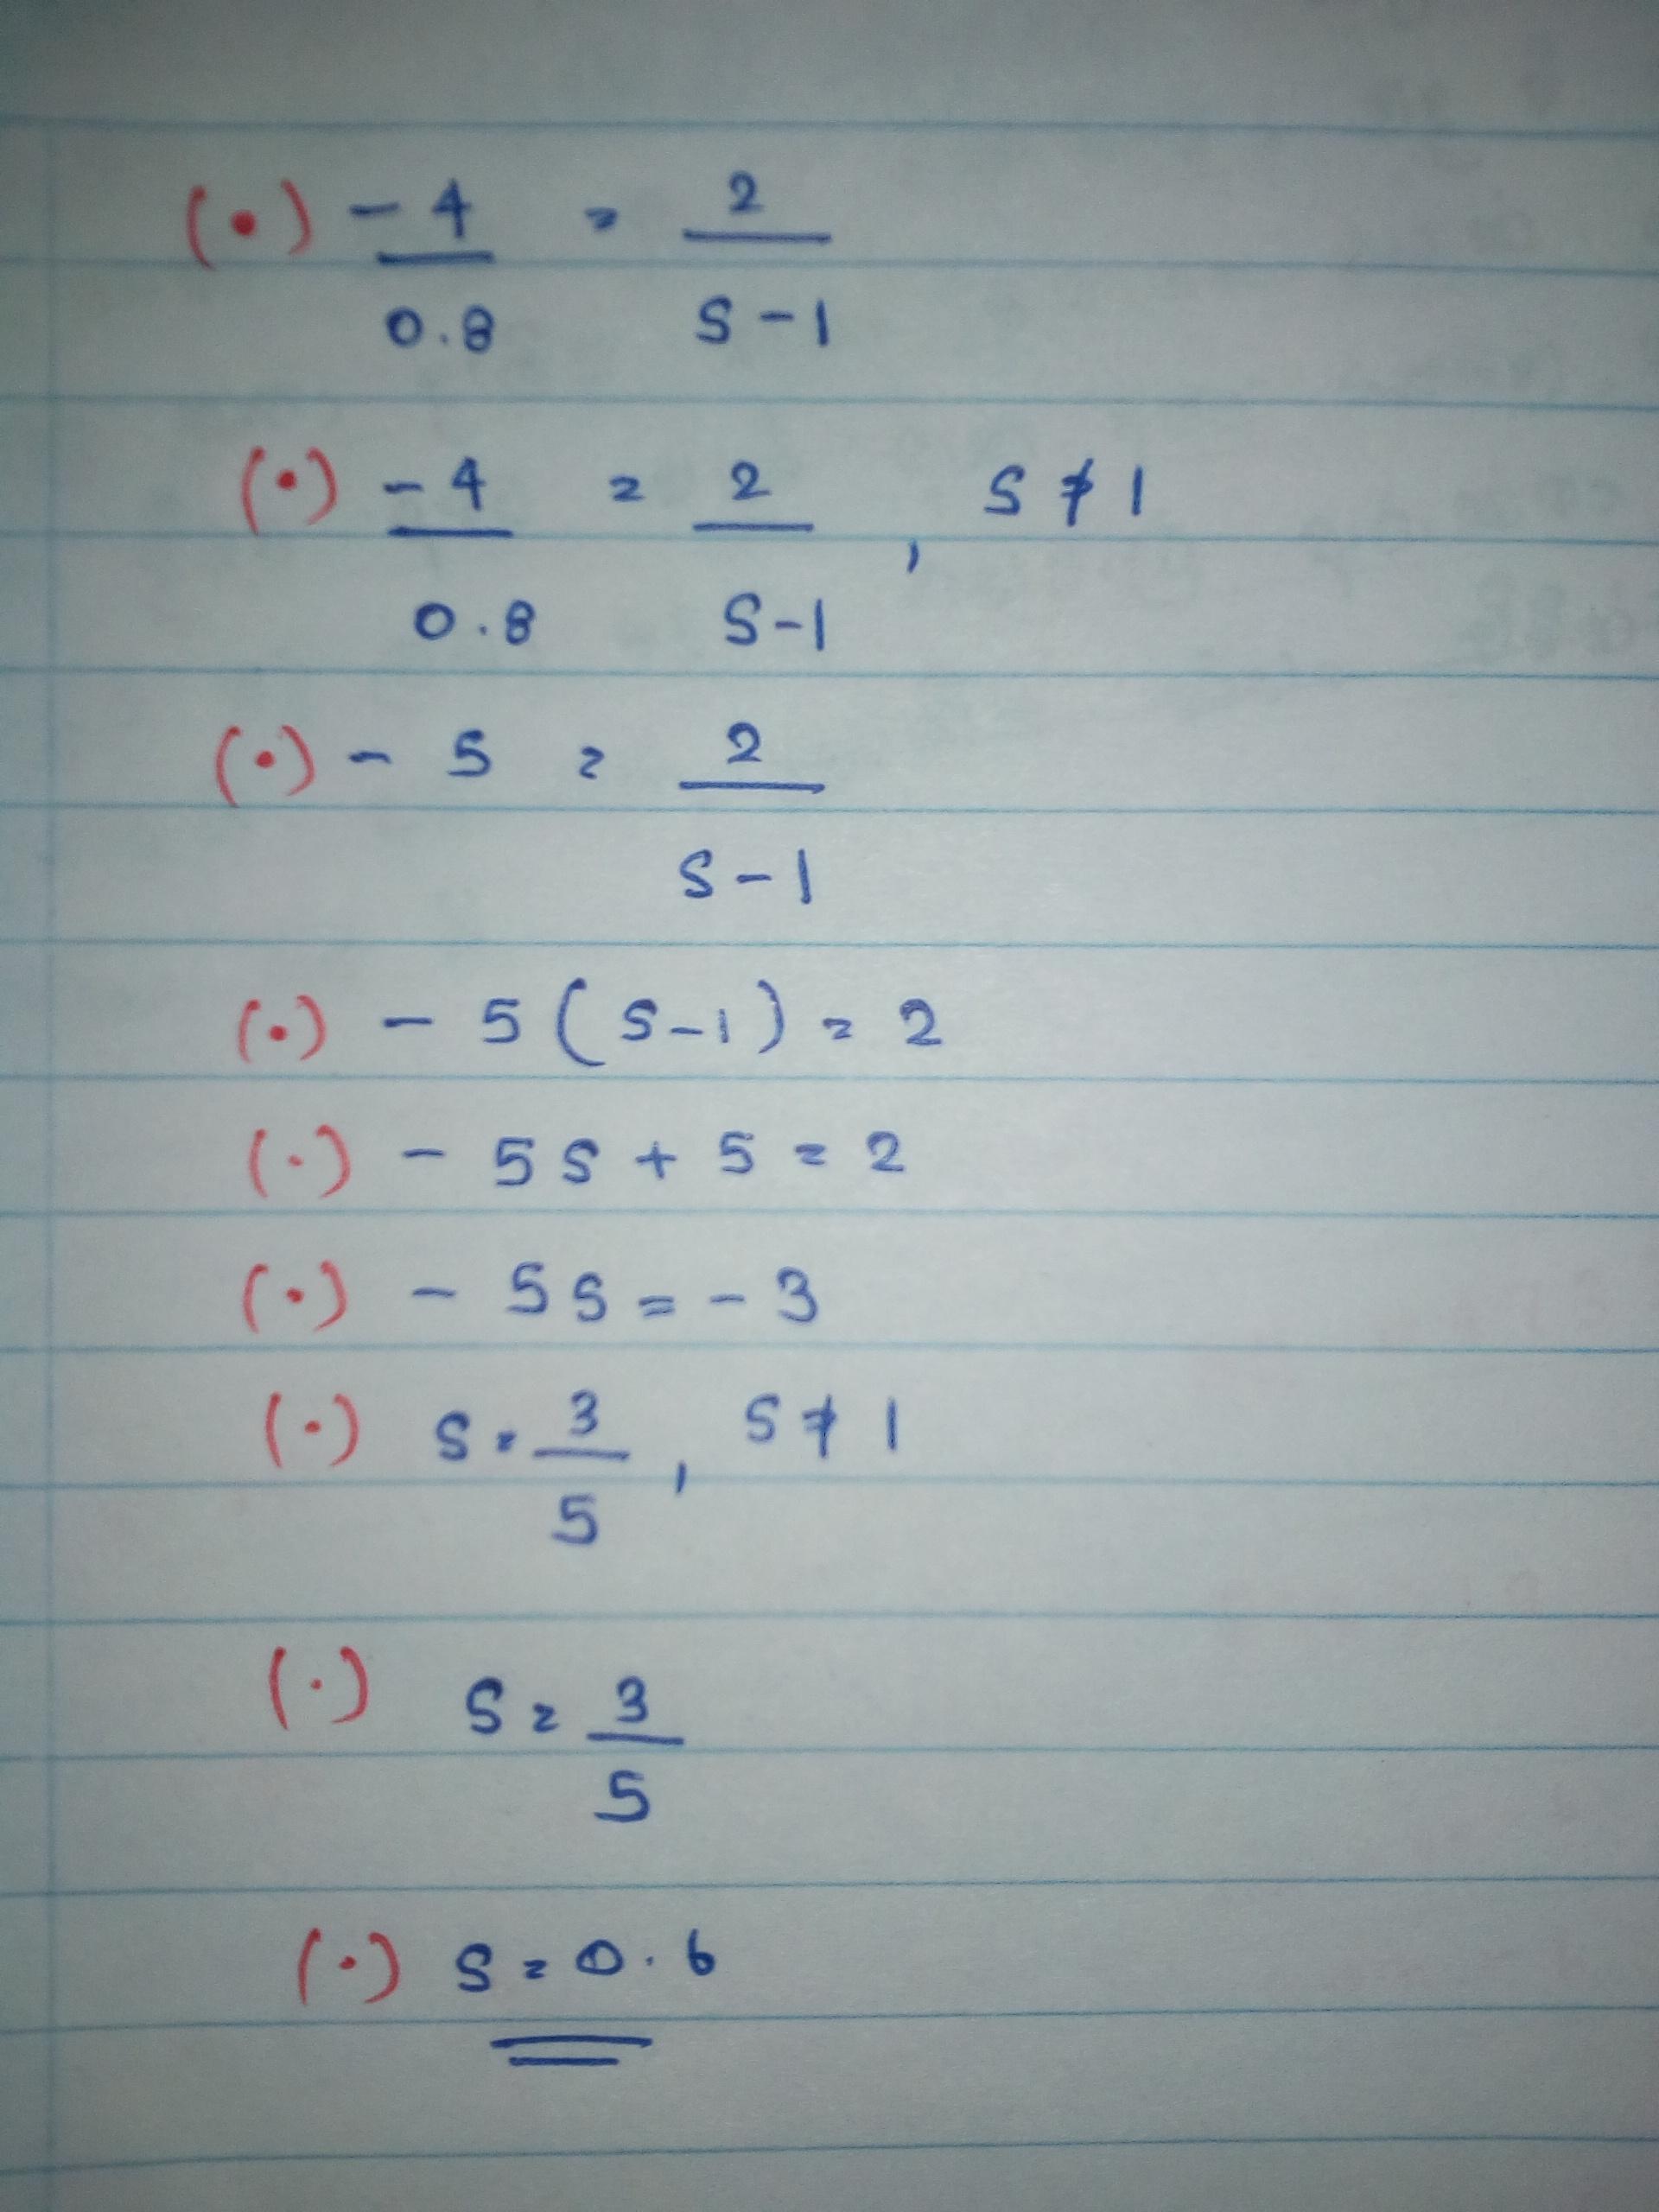 (•) -4/0.8 = 2/S-1
(•) -4/0.8 = 2/S-1, S ≠ 1
(•) - 5 = 2/S-1
(•) - 5 (S-1) = 2
(•) - 5S + 5 = 2
(•) - 5S = - 3
(•) S = 3/5, S ≠ 1
(•) S = 3/5
(•) S = 0.6